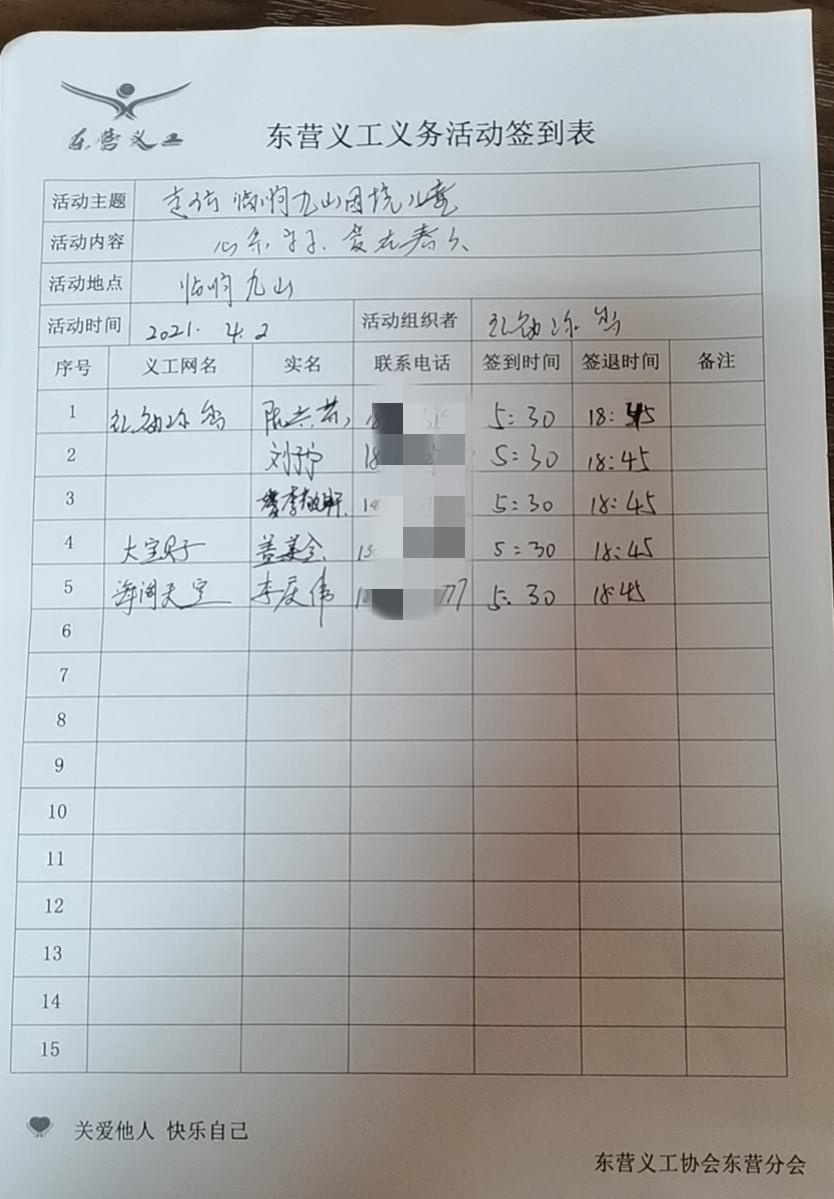 东营义工
东营义工义务活动签到表
活动主题 走访临朐九山困境儿童
活动内容 心系 爱在春天
活动地点 临朐九山
活动时间 2021. 4. 2 活动组织者
序号 义工网名 实名 联系电话 签到时间 签退时间 备注
1 5:30 18:45
2 刘宁 18 5:30 18:45
3 5:30 18:45
4 大宝贝 盖美全 5:30 18:45
5 海阔天空 李庆伟 777 5:30 18:45
6
7
8
9
10
11
12
13
14
15
关爱他人 快乐自己
东营义工协会东营分会